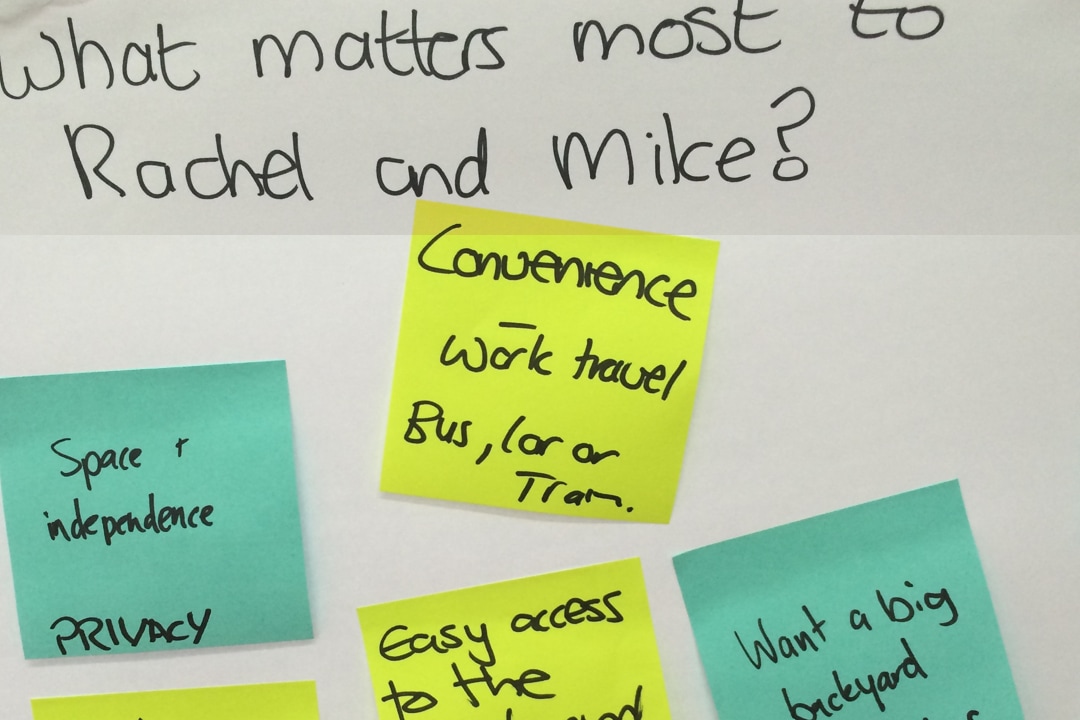 What matters most to
Rachel and Mike?
Convenience
–
Work travel
Bus, Car or
Tram.
Space +
independence
PRIVACY
Easy access
to the
Want a big
backyard